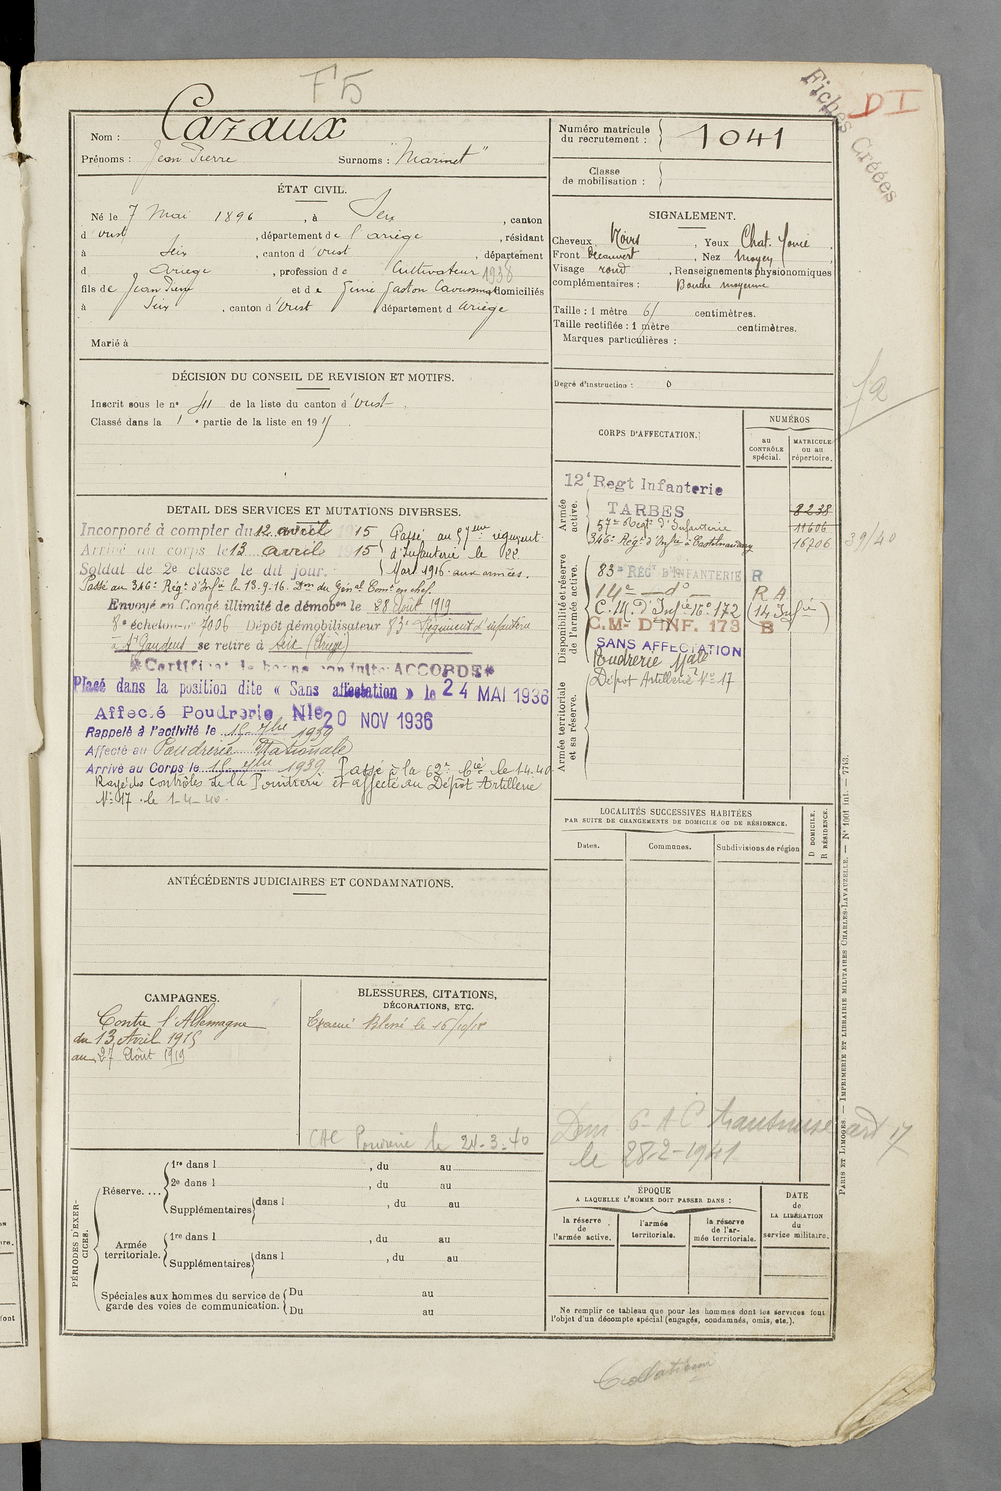 F5
Fiches Créées
DI
Nom : Cazaux
Prénoms : Jean Pierre Surnoms : "Marinet"
Numéro matricule du recrutement : 1041
Classe de mobilisation :
ÉTAT CIVIL.
Né le 7 Mai 1896, à Seix, canton
d'oust, département de l'ariège, résidant
à Seix, canton d'oust, département
d ariège, profession de Cultivateur 1938
fils de Jean Pierre et de domiciliés
à Seix, canton d'oust département d ariège
Marié à
SIGNALEMENT.
Cheveux Noirs, Yeux Chat.
Front Découvert, Nez Moyen
Visage rond, Renseignements physionomiques
complémentaires : Bouche moyenne
Taille : 1 mètre 61 centimètres.
Taille rectifiée : 1 mètre centimètres.
Marques particulières :
Degré d'instruction : 0
DÉCISION DU CONSEIL DE REVISION ET MOTIFS.
Inscrit sous le n° de la liste du canton d'oust.
Classé dans la 1e partie de la liste en 19
CORPS D'AFFECTATION.
NUMÉROS
au CONTRÔLE spécial.
MATRICULE ou au répertoire.
Armée active.
12e Regt Infanterie
TARBES 8238
57e Regt d'Infanterie 11606
346e Rég. d'Infie à Castelnaudary 16206
39/40
Disponibilité et réserve de l'armée active.
83e REGt D'INFANTERIE R
14e — do — R A
C.M. d'Infie No 172 (14 Infie)
C.M. D'INF. 173 B
SANS AFFECTATION
Poudrerie Nale
Dépot Artillerie No 17
Armée territoriale et sa réserve.
DETAIL DES SERVICES ET MUTATIONS DIVERSES.
Incorporé à compter du 12 avril 1915 Passé au 57eme régiment
Arrivé au corps le 13 avril 1915 d'Infanterie le 22
Soldat de 2e classe le dit jour. Mars 1916 aux armées.
Passé au 346e Rég. d'Infie le 13.9.16. Don du Génal Comt en chef.
Envoyé en Congé illimité de démobon le 28 Août 1919
8e échelon n° 7006 Dépôt démobilisateur 83e Régiment d'infanterie
à St Gaudens se retire à Seix (Ariège)
Certificat de bonne conduite ACCORDÉ
Placé dans la position dite « Sans affectation » le 24 MAI 1936
Affecté Poudrerie Nle 20 NOV 1936
Rappelé à l'activité le 15 7bre 1939
Affecté au Poudrerie Nationale
Arrivé au Corps le 15 7bre 1939 Passé à la 62e Cie le 1-4-40
Rayé des Contrôles de la Poudrerie et affecté au Dépot Artillerie
No 17 le 1-4-40.
LOCALITÉS SUCCESSIVES HABITÉES
PAR SUITE DE CHANGEMENTS DE DOMICILE OU DE RÉSIDENCE.
Dates.
Communes.
Subdivisions de région
D DOMICILE.
R RÉSIDENCE.
ANTÉCÉDENTS JUDICIAIRES ET CONDAMNATIONS.
CAMPAGNES.
Contre l'Allemagne
du 13 Avril 1915
au 27 Août 1919
BLESSURES, CITATIONS,
DÉCORATIONS, ETC.
Blessé le 16/10/18
Poudrerie le 24-3-40
6 A C transmise
le 28-2-1941
PÉRIODES D'EXERCICES.
Réserve....
1re dans l , du au
2e dans l , du au
Supplémentaires dans l , du au
Armée territoriale.
1re dans l , du au
Supplémentaires dans l , du au
Spéciales aux hommes du service de garde des voies de communication.
Du au
Du au
ÉPOQUE
A LAQUELLE L'HOMME DOIT PASSER DANS :
la réserve de l'armée active.
l'armée territoriale.
la réserve de l'armée territoriale.
DATE de LA LIBÉRATION du service militaire.
Ne remplir ce tableau que pour les hommes dont les services font
l'objet d'un décompte spécial (engagés, condamnés, omis, etc.).
PARIS ET LIMOGES. — IMPRIMERIE ET LIBRAIRIE MILITAIRES CHARLES-LAVAUZELLE. — N° 1001 int. — 7713.